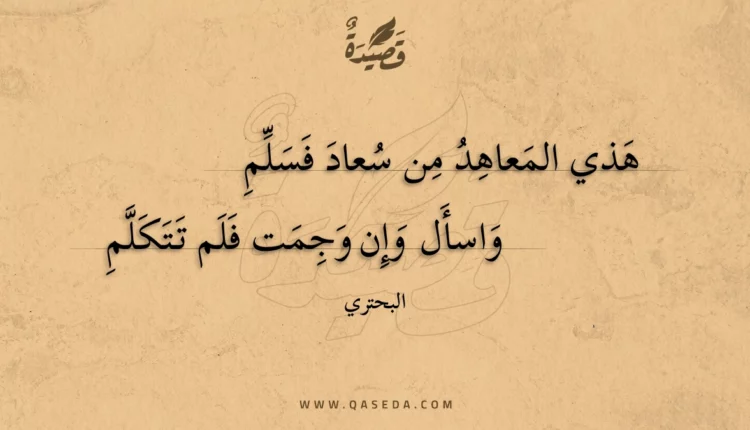 قَصِيدَةٌ
هَذي المَعاهِدُ مِن سُعادَ فَسَلِّمِ
وَاسأَل وَإِن وَجِمَت فَلَم تَتَكَلَّمِ
البحتري
WWW.QASEDA.COM